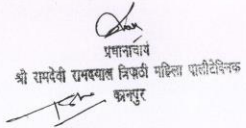 प्रधानाचार्य
श्री रामदेवी रामदयाल त्रिपाठी महिला पालीटेक्निक
कानपुर